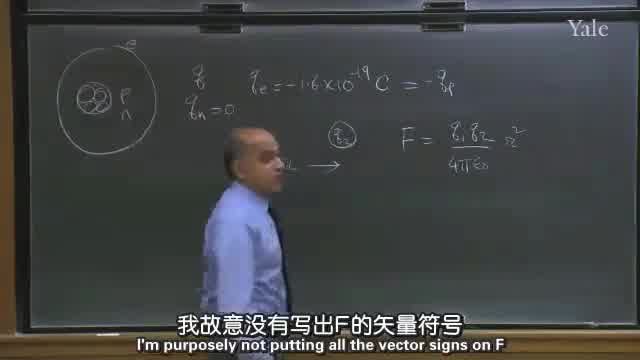 Yale
e
p
n
q
qₑ = -1.6×10⁻¹⁹ C = -qₚ
qₙ = 0
q₂
F = q₁q₂ / 4πε₀ r²
我故意没有写出F的矢量符号
I'm purposely not putting all the vector signs on F